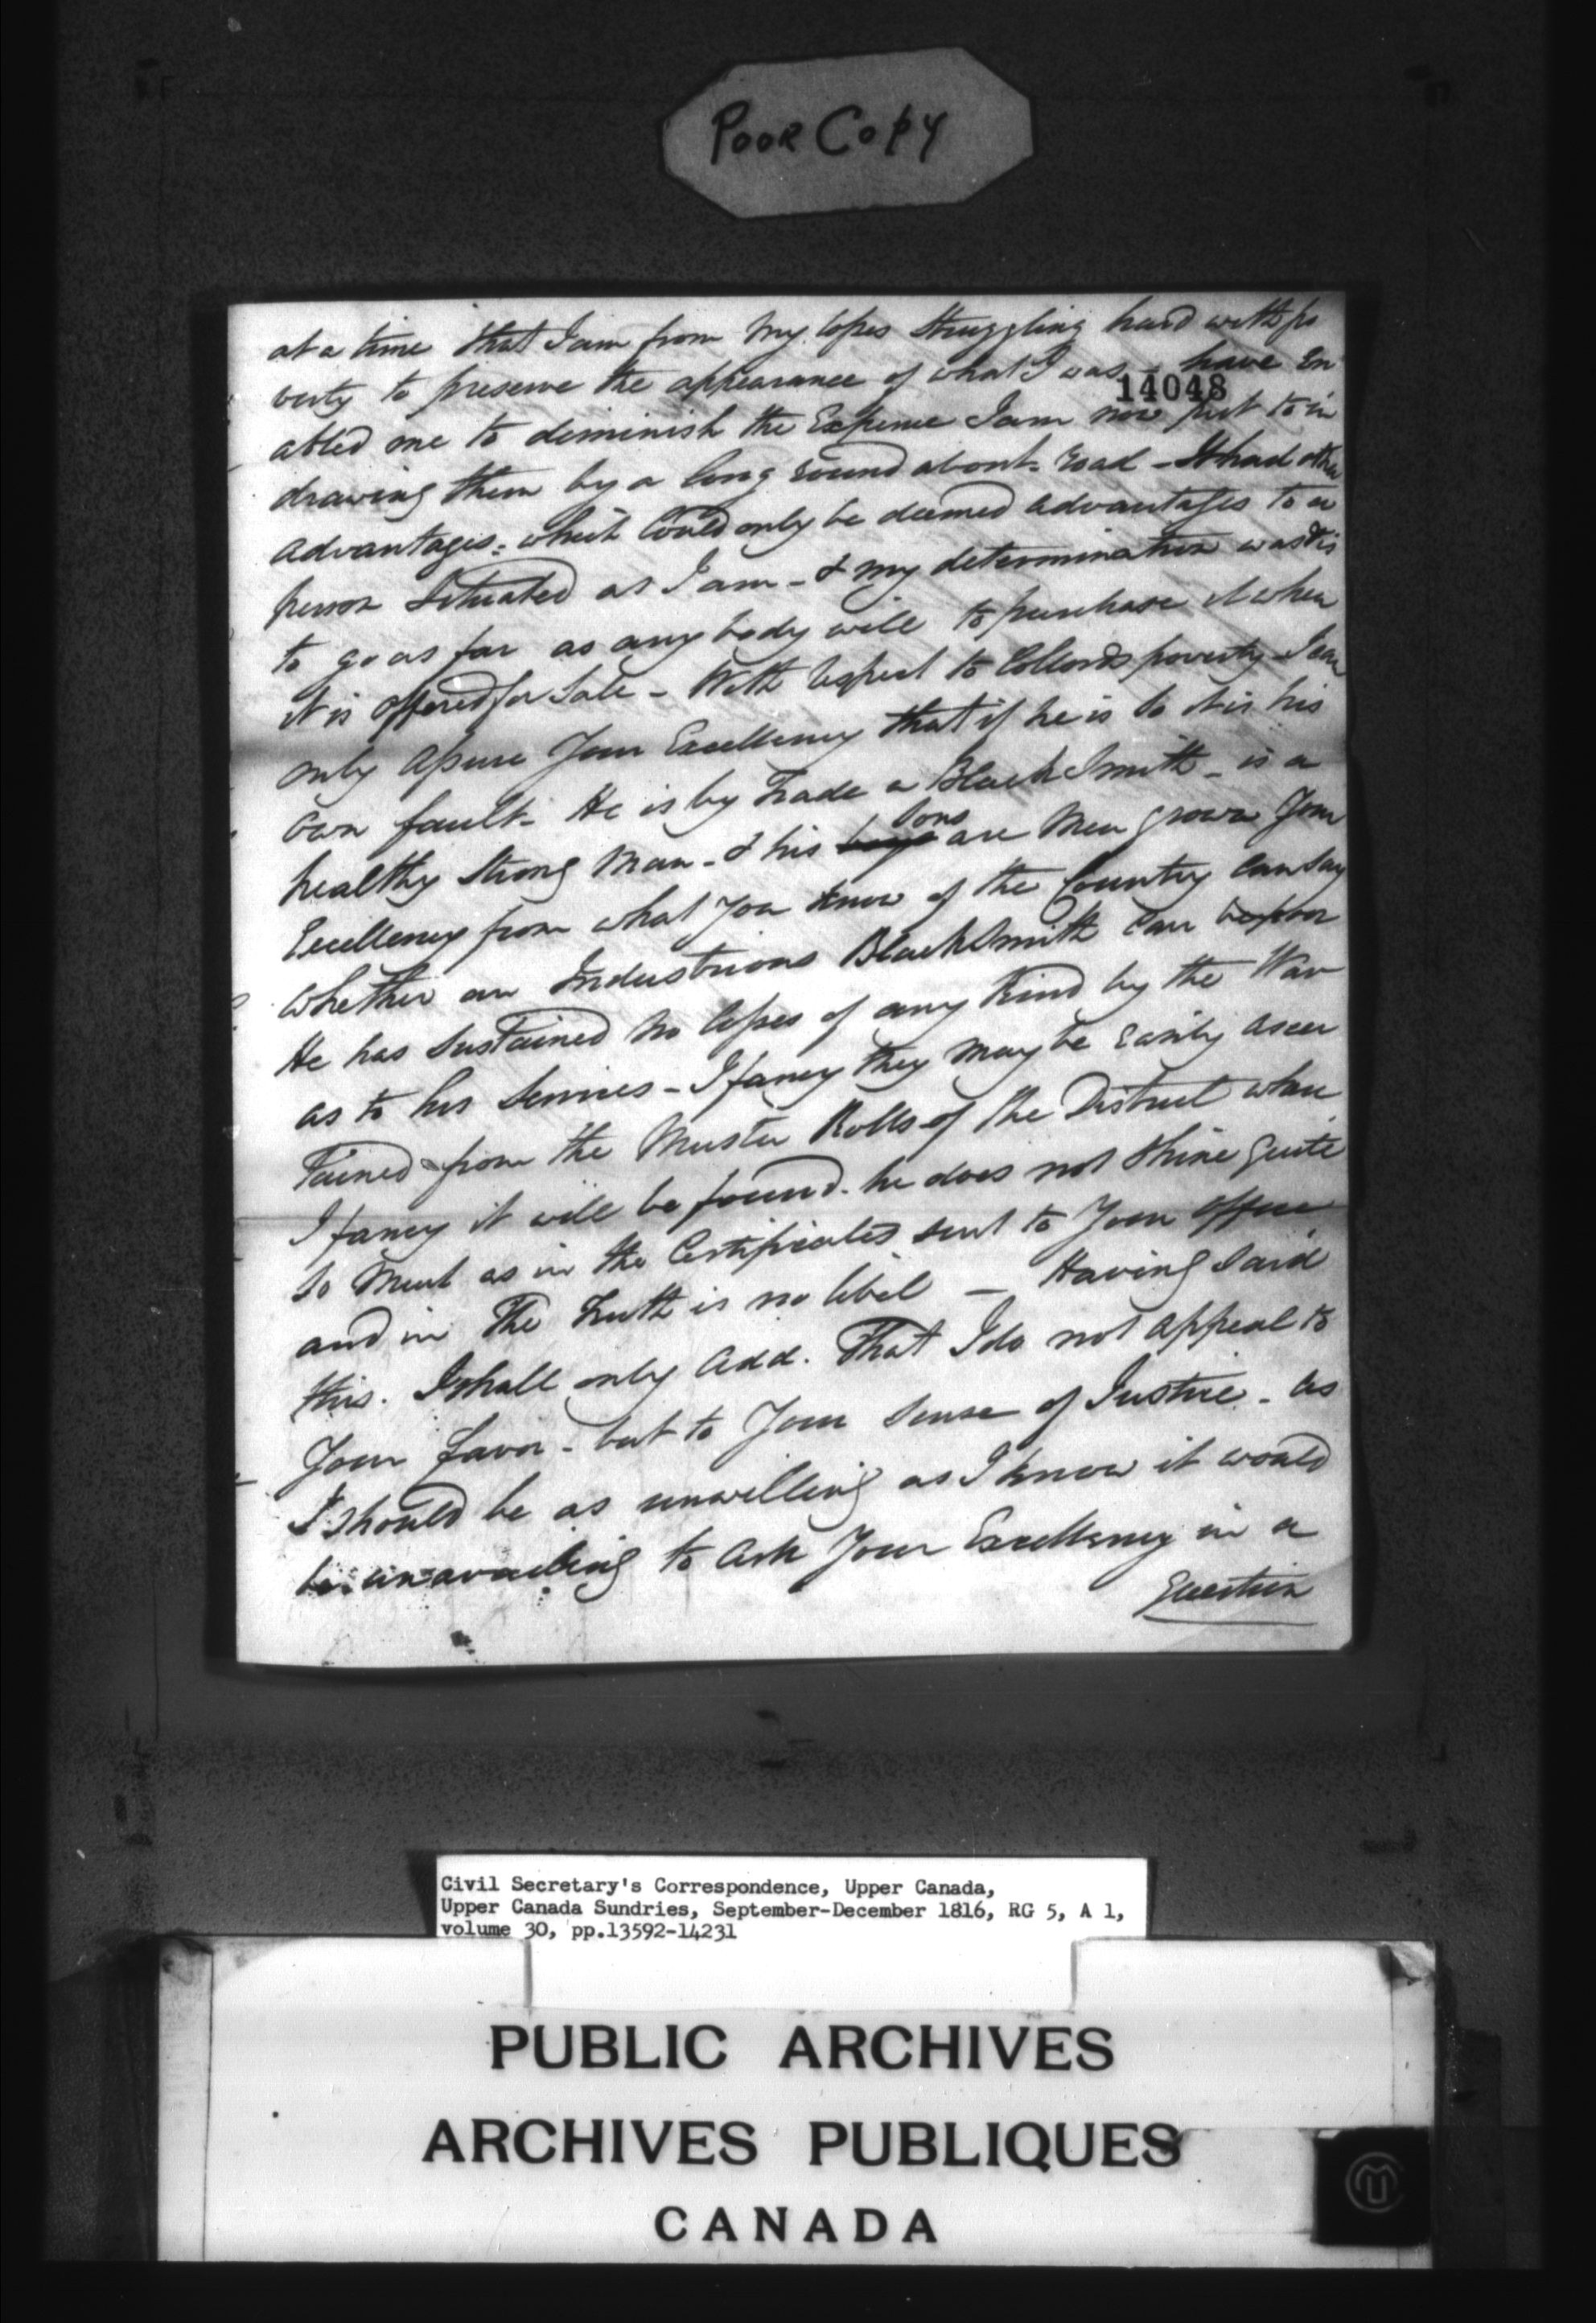 Poor Copy
at a time that I am from my losses struggling hard with po
verty to preserve the appearance of what I was - have En
14048
abled me to diminish the Expense I am now put to in
drawing them by a long round about road - It had other
advantages: which Could only be deemed advantages to a
person Situated as I am - & my determination was & is
to go as far as any body will to purchase it when
it is offered for Sale - With respect to Collards poverty - I can
only assure Your Excellency that if he is so it is his
own fault - He is by Trade a Black Smith - is a
healthy strong Man - & his boys sons are Men grown Your
Excellency from what you know of the Country Can say
whether an Industrious BlackSmith Can be poor
He has sustained no losses of any Kind by the War
as to his services - I fancy they may be Easily ascer
tained from the Muster Rolls of the District where
I fancy it will be found. he does not shine quite
so Much as in the Certificates sent to Your office
and in The Truth is no libel — Having said
this. I shall only add. That I do not appeal to
Your favor - but to Your sense of Justice - as
I should be as unwilling as I know it would
be unavailing to ask Your Excellency in a
Question
Civil Secretary's Correspondence, Upper Canada,
Upper Canada Sundries, September-December 1816, RG 5, A 1,
volume 30, pp.13592-14231
PUBLIC ARCHIVES
ARCHIVES PUBLIQUES
CANADA